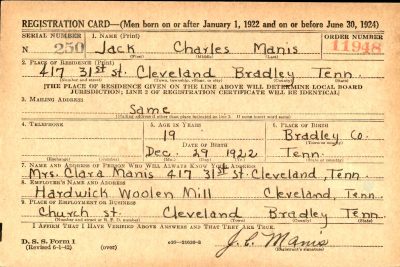 REGISTRATION CARD—(Men born on or after January 1, 1922 and on or before June 30, 1924)
SERIAL NUMBER 1. NAME (Print) ORDER NUMBER
N 250 Jack Charles Manis 11948
(First) (Middle) (Last)
2. PLACE OF RESIDENCE (Print)
417 31st st. Cleveland Bradley Tenn.
(Number and street) (Town, township, village, or city) (County) (State)
[THE PLACE OF RESIDENCE GIVEN ON THE LINE ABOVE WILL DETERMINE LOCAL BOARD
JURISDICTION; LINE 2 OF REGISTRATION CERTIFICATE WILL BE IDENTICAL]
3. MAILING ADDRESS
Same
[Mailing address if other than place indicated on line 2. If same insert word same]
4. TELEPHONE 5. AGE IN YEARS 6. PLACE OF BIRTH
19 Bradley Co.
DATE OF BIRTH (Town or county)
Dec. 29 1922 Tenn.
(Exchange) (Number) (Mo.) (Day) (Yr.) (State or country)
7. NAME AND ADDRESS OF PERSON WHO WILL ALWAYS KNOW YOUR ADDRESS
Mrs. Clara Manis 417 31st st. Cleveland, Tenn.
8. EMPLOYER'S NAME AND ADDRESS
Hardwick Woolen Mill Cleveland, Tenn.
9. PLACE OF EMPLOYMENT OR BUSINESS
Church st. Cleveland Bradley Tenn.
(Number and street or R. F. D. number) (Town) (County) (State)
I AFFIRM THAT I HAVE VERIFIED ABOVE ANSWERS AND THAT THEY ARE TRUE.
D. S. S. Form 1
(Revised 6-1-42) (over) J. C. Manis
(Registrant's signature)